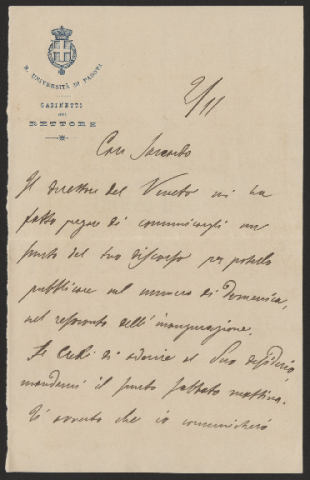 R. UNIVERSITÀ DI PADOVA
GABINETTO
DEL
RETTORE
2/11
Caro Sacerdo
Il direttore del Veneto mi ha
fatto pregare di comunicargli un
sunto del tuo discorso per poterlo
pubblicare nel numero di Domenica,
nel resoconto dell'inaugurazione.
Se credi di aderire al suo desiderio,
mandami il sunto sabato mattina.
Ti avverto che io comunicherò